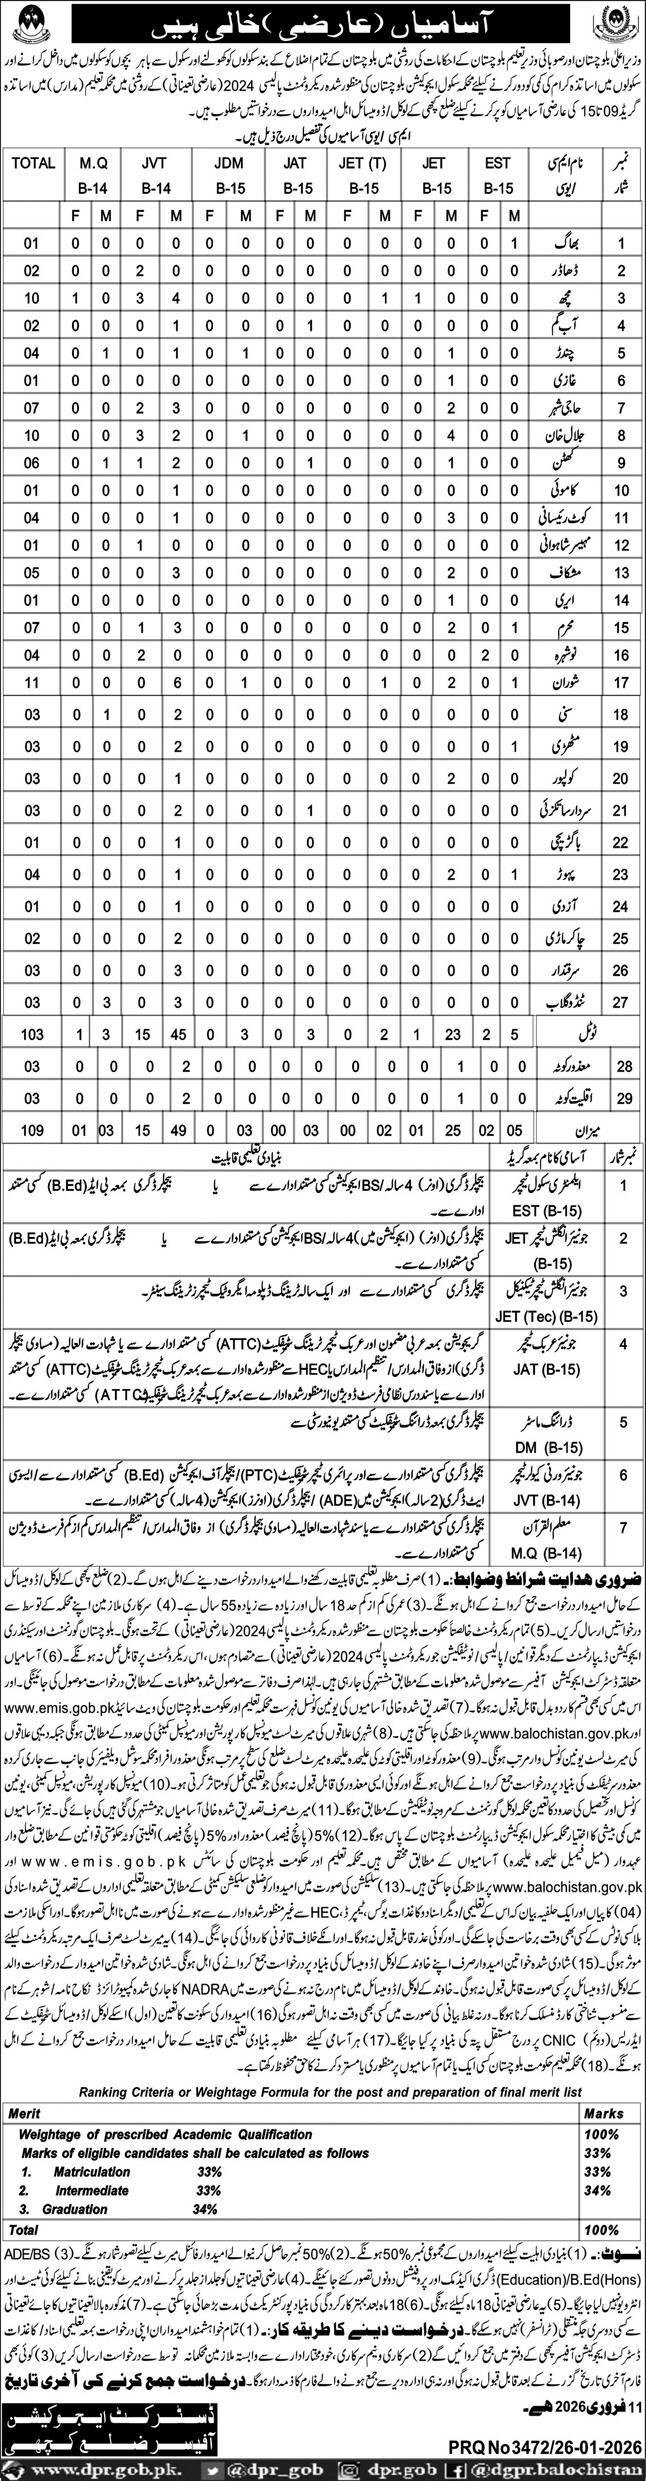 آسامیاں (عارضی) خالی ہیں
وزیراعلیٰ بلوچستان اور صوبائی وزیر تعلیم بلوچستان کے احکامات کی روشنی میں بلوچستان کے تمام اضلاع کے بند سکولوں کو کھولنے اور سکول سے باہر بچوں کو سکولوں میں داخل کرانے اور
سکولوں میں اساتذہ کرام کی کمی کو دور کرنے کیلئے محکمہ سکول ایجوکیشن بلوچستان کی منظور شدہ ریکروٹمنٹ پالیسی 2024 (عارضی تعیناتی) کے روشنی میں محکمہ تعلیم (مدارس) میں اساتذہ
گریڈ 09 تا 15 کی عارضی آسامیاں کو پر کرنے کیلئے ضلع کچھی کے لوکل/ڈومیسائل اہل امیدواروں سے درخواستیں مطلوب ہیں۔
ایم سی/یوسی آسامیوں کی تفصیل درج ذیل ہیں۔
TOTAL M.Q JVT JDM JAT JET (T) JET EST نام ایم سی نمبر
B-14 B-14 B-15 B-15 B-15 B-15 B-15 /یوسی شمار
F M F M F M F M F M F M F M
01 0 0 0 0 0 0 0 0 0 0 0 0 0 1 بھاگ 1
02 0 0 2 0 0 0 0 0 0 0 0 0 0 0 ڈھاڈر 2
10 1 0 3 4 0 0 0 0 0 1 1 0 0 0 مچھ 3
02 0 0 0 1 0 0 0 1 0 0 0 0 0 0 آب گم 4
04 0 1 0 1 0 1 0 0 0 0 0 1 0 0 چندڑ 5
01 0 0 0 0 0 0 0 0 0 0 0 1 0 0 غازی 6
07 0 0 2 3 0 0 0 0 0 0 0 2 0 0 حاجی شہر 7
10 0 0 3 2 0 1 0 0 0 0 0 4 0 0 جلال خان 8
06 0 1 1 2 0 0 0 1 0 0 0 1 0 0 کھٹن 9
01 0 0 0 1 0 0 0 0 0 0 0 0 0 0 کاموئی 10
04 0 0 0 1 0 0 0 0 0 0 0 3 0 0 کوٹ رئیسانی 11
01 0 0 1 0 0 0 0 0 0 0 0 0 0 0 مہیسر شاہوانی 12
05 0 0 0 3 0 0 0 0 0 0 0 2 0 0 مشکاف 13
01 0 0 0 0 0 0 0 0 0 0 0 1 0 0 ایری 14
07 0 0 1 3 0 0 0 0 0 0 0 2 0 1 محرم 15
04 0 0 2 0 0 0 0 0 0 0 0 0 2 0 نوشہرہ 16
11 0 0 0 6 0 1 0 0 0 1 0 2 0 1 شوران 17
03 0 1 0 2 0 0 0 0 0 0 0 0 0 0 سنی 18
03 0 0 0 2 0 0 0 0 0 0 0 0 0 1 مٹھڑی 19
03 0 0 0 1 0 0 0 0 0 0 0 2 0 0 کولپور 20
03 0 0 0 2 0 0 0 1 0 0 0 0 0 0 سردار ساتکزئی 21
01 0 0 0 1 0 0 0 0 0 0 0 0 0 0 باگڑیچی 22
04 0 0 0 1 0 0 0 0 0 0 0 2 0 1 پہوڑ 23
01 0 0 0 1 0 0 0 0 0 0 0 0 0 0 آزدی 24
02 0 0 0 2 0 0 0 0 0 0 0 0 0 0 چاکر ماڑی 25
03 0 0 0 3 0 0 0 0 0 0 0 0 0 0 سرقندار 26
03 0 3 0 3 0 0 0 0 0 0 0 0 0 0 ٹنڈو گلاب 27
103 1 3 15 45 0 3 0 3 0 2 1 23 2 5 ٹوٹل
03 0 0 0 2 0 0 0 0 0 0 0 1 0 0 معذور کوٹہ 28
03 0 0 0 2 0 0 0 0 0 0 0 1 0 0 اقلیت کوٹہ 29
109 01 03 15 49 0 03 00 03 00 02 01 25 02 05 میزان
نمبر شمار آسامی کا نام بمعہ گریڈ بنیادی تعلیمی قابلیت
1 ایلمنٹری سکول ٹیچر EST (B-15) بیچلر ڈگری (اونر) 4 سالہ/BS ایجوکیشن کسی مستند ادارے سے یا بیچلر ڈگری بمعہ بی ایڈ (B.Ed) کسی مستند
ادارے سے۔
2 جونیئر انگلش ٹیچر JET (B-15) بیچلر ڈگری (اونر) (ایجوکیشن میں) 4 سالہ/BS ایجوکیشن کسی مستند ادارے سے یا بیچلر ڈگری بمعہ بی ایڈ (B.Ed)
کسی مستند ادارے سے۔
3 جونیئر انگلش ٹیچر ٹیکنیکل JET (Tec) (B-15) بیچلر ڈگری کسی مستند ادارے سے اور ایک سالہ ٹریننگ ڈپلومہ ایگروٹیک ٹیچرز ٹریننگ سینٹر۔
4 جونیئر عربک ٹیچر JAT (B-15) گریجویشن بمعہ عربی مضمون اور عربک ٹیچر ٹریننگ سرٹیفکیٹ (ATTC) کسی مستند ادارے سے یا شہادت العالیہ (مساوی بیچلر
ڈگری) از وفاق المدارس/تنظیم المدارس یا HEC سے منظور شدہ ادارے سے بمعہ عربک ٹیچر ٹریننگ سرٹیفکیٹ (ATTC) کسی مستند
ادارے سے یا سند درس نظامی فرسٹ ڈویژن از منظور شدہ ادارے سے بمعہ عربک ٹیچر ٹریننگ سرٹیفکیٹ (ATTC) کسی مستند ادارے سے۔
5 ڈرائنگ ماسٹر DM (B-15) بیچلر ڈگری بمعہ ڈرائنگ سرٹیفکیٹ کسی مستند یونیورسٹی سے
6 جونیئر ورنی کیولر ٹیچر JVT (B-14) بیچلر ڈگری کسی مستند ادارے سے اور پرائمری ٹیچر سرٹیفکیٹ (PTC)/بیچلر آف ایجوکیشن (B.Ed) کسی مستند ادارے سے/ایسوسی
ایٹ ڈگری (2 سالہ) ایجوکیشن میں (ADE)/بیچلر ڈگری (اونرز) ایجوکیشن (4 سالہ) کسی مستند ادارے سے۔
7 معلم القرآن M.Q (B-14) بیچلر ڈگری کسی مستند ادارے سے یا سند شہادت العالیہ (مساوی بیچلر ڈگری) از وفاق المدارس/تنظیم المدارس کم از کم فرسٹ ڈویژن
کسی مستند ادارے سے۔
ضروری ھدایت شرائط وضوابط:۔ (1) صرف مطلوبہ تعلیمی قابلیت رکھنے والے امیدوار درخواست دینے کے اہل ہوں گے۔ (2) ضلع کچھی کے لوکل/ڈومیسائل
کے حامل امیدوار درخواست جمع کروانے کے اہل ہونگے۔ (3) عمر کی کم از کم حد 18 سال اور زیادہ سے زیادہ 55 سال ہے۔ (4) سرکاری ملازمین اپنے محکمہ کے توسط سے
درخواستیں ارسال کریں۔ (5) تمام ریکروٹمنٹ خالصتاً حکومت بلوچستان سے منظور شدہ ریکروٹمنٹ پالیسی 2024 (عارضی تعیناتی) کے تحت ہونگی۔ بلوچستان گورنمنٹ اور سیکنڈری
ایجوکیشن ڈیپارٹمنٹ کے دیگر قوانین/پالیسی/نوٹیفکیشن جو ریکروٹمنٹ پالیسی 2024 (عارضی تعیناتی) سے متصادم ہوں، اس ریکروٹمنٹ پر قابل عمل نہ ہونگے۔ (6) آسامیاں
متعلقہ ڈسٹرکٹ ایجوکیشن آفیسر سے موصول شدہ معلومات کے مطابق مشتہر کی جارہی ہیں۔ لہٰذا صرف دفاتر سے موصول شدہ معلومات کے مطابق درخواست موصول کی جائیگی۔ اور
اس میں کسی بھی قسم کا ردوبدل قابل قبول نہ ہوگا۔ (7) تصدیق شدہ خالی آسامیوں کی یونین کونسل فہرست محکمہ تعلیم اور حکومت بلوچستان کی ویب سائیڈ www.emis.gob.pk
اور www.balochistan.gov.pk پر ملاحظہ کی جاسکتی ہیں۔ (8) شہری علاقوں کی میرٹ لسٹ میونسپل کارپوریشن اور میونسپل کمیٹی کی حدود کے مطابق ہونگی جبکہ دیہی علاقوں
کی میرٹ لسٹ یونین کونسل وار مرتب ہونگی۔ (9) معذور کوٹہ اور اقلیتی کوٹہ کی علیحدہ علیحدہ میرٹ لسٹ ضلع کی سطح پر مرتب ہونگی معذور افراد محکمہ سوشل ویلفیئر کی جانب سے جاری کردہ
معذور سرٹیفکٹ کی بنیاد پر درخواست جمع کروانے کے اہل ہونگے اور کوئی ایسی معذوری قابل قبول نہ ہوگی جو تعلیمی عمل کو متاثر کرتی ہو۔ (10) میونسپل کارپوریشن، میونسپل کمیٹی، یونین
کونسل اور تحصیل کی حدود کا تعین محکمہ لوکل گورنمنٹ کے مروجہ نوٹیفکیشن کے مطابق ہوگا۔ (11) میرٹ صرف تصدیق شدہ خالی آسامیاں جو مشتہر کی گئی ہیں کی جائے گی۔ نیز آسامیوں
میں کمی بیشی کا اختیار محکمہ سکول ایجوکیشن ڈیپارٹمنٹ بلوچستان کے پاس ہوگا۔ (12) 5% (پانچ فیصد) معذور اور 5% (پانچ فیصد) اقلیتی کوٹہ حکومتی قوانین کے مطابق ضلع وار
عہدوار (میل فیمیل علیحدہ علیحدہ) آسامیوں کے مطابق مختص ہیں۔ محکمہ تعلیم اور حکومت بلوچستان کی سائٹس www.emis.gob.pk اور
www.balochistan.gov.pk پر ملاحظہ کی جاسکتی ہیں۔ (13) سلیکشن کی صورت میں امیدوار کو ضلعی سلیکشن کمیٹی کے مطابق متعلقہ تعلیمی اداروں کے تصدیق شدہ اسناد کی
(04) کاپیاں اور ایک حلفیہ بیان کہ اس کے تعلیمی/دیگر اسناد و کاغذات بوگس، ٹیمپرڈ، HEC سے غیر منظور شدہ ادارے سے ہونے کی صورت میں نااہل تصور ہوگا۔ اور اسکی ملازمت
بلا کسی نوٹس کے کسی بھی وقت برخاست کی جائے گی۔ اور کوئی عذر قابل قبول نہ ہوگا۔ اور انکے خلاف قانونی کاروائی کی جائیگی۔ (14) یہ میرٹ لسٹ صرف ایک مرتبہ ریکروٹمنٹ کیلئے
موثر ہوگی۔ (15) شادی شدہ خواتین امیدوار صرف اپنے خاوند کے لوکل/ڈومیسائل کی بنیاد پر درخواست جمع کروانے کی اہل ہونگی۔ شادی شدہ خواتین امیدوار کے درخواست والد
کے لوکل/ڈومیسائل پر کسی صورت قابل قبول نہ ہوگی۔ خاوند کے لوکل/ڈومیسائل میں نام درج نہ ہونے کی صورت میں NADRA کا جاری شدہ کمپیوٹرائزڈ نکاح نامہ/شوہر کے نام
سے منسوب شناختی کارڈ منسلک کرنا ہوگا۔ ورنہ غلط بیانی کی صورت میں کسی بھی وقت نہ اہل تصور ہوگی (16) امیدوار کی سکونت کا تعین (اول) اسکے لوکل/ڈومیسائل سرٹیفکیٹ کے
ایڈریس (دوئم) CNIC پر درج مستقل پتہ کی بنیاد پر کیا جائیگا۔ (17) ہر آسامی کیلئے مطلوبہ بنیادی تعلیمی قابلیت کے حامل امیدوار درخواست جمع کروانے کے اہل
ہونگے۔ (18) محکمہ تعلیم حکومت بلوچستان کسی ایک یا تمام آسامیوں پر منظوری یا مسترد کرنے کا حق محفوظ رکھتا ہے۔
Ranking Criteria or Weightage Formula for the post and preparation of final merit list
Merit Marks
Weightage of prescribed Academic Qualification 100%
Marks of eligible candidates shall be calculated as follows 33%
1. Matriculation 33% 33%
2. Intermediate 33% 34%
3. Graduation 34%
Total 100%
نوٹ:۔ (1) بنیادی اہلیت کیلئے امیدواروں کے مجموعی نمبر 50% ہونگے۔ (2) 50% نمبر حاصل کرنیوالے امیدوار فائنل میرٹ کیلئے تصور شمار ہونگے۔ (3) ADE/BS
(Education)/B.Ed(Hons) ڈگری اکیڈمک اور پروفیشنل دونوں تصور کئے جائینگے۔ (4) عارضی تعیناتیوں کو جلد از جلد پر کرنے اور میرٹ کو یقینی بنانے کیلئے کوئی ٹیسٹ اور
انٹرویو نہیں لیا جائیگا۔ (5) یہ عارضی تعیناتی 18 ماہ کیلئے ہونگی۔ (6) 18 ماہ بعد بہتر کارکردگی کی بنیاد پور کنٹریکٹ کی مدت بڑھائی جاسکتی ہے۔ (7) مذکورہ بالا تعیناتیوں کا جائے تعیناتی
سے کسی دوسری جگہ منتقلی (ٹرانسفر) نہیں ہوسکے گا۔ درخواست دینے کا طریقہ کار:۔ (1) تمام خواہشمند امیدوار ان اپنی درخواست بمعہ تعلیمی اسناد/کاغذات
ڈسٹرکٹ ایجوکیشن آفیسر کچھی کے دفتر میں جمع کروائیں گے (2) سرکاری و نیم سرکاری، خود مختار ادارے سے وابستہ ملازمین محکمانہ توسط سے درخواست ارسال کریں (3) کوئی بھی
فارم آخری تاریخ گزرنے کے بعد قابل قبول نہ ہوگی اور نہ ہی ادارہ دیر سے جمع ہونے والے فارم کا ذمہ دار ہوگا۔ درخواست جمع کرنے کی آخری تاریخ
11 فروری 2026 ھے۔
ڈسٹرکٹ ایجوکیشن
آفیسر ضلع کچھی
PRQ No 3472/26-01-2026
www.dpr.gob.pk. @dpr_gob dpr.gob @dgpr.balochistan